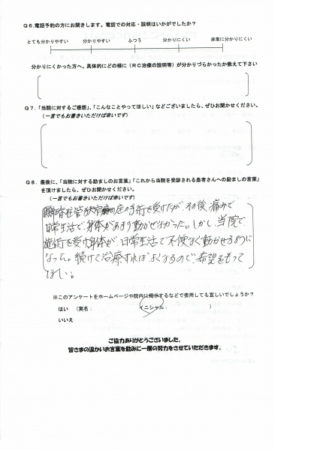 Q6. 電話予約の方にお聞きします。電話での対応・説明はいかがでしたか？
とても分かりやすい 分かりやすい ふつう 分かりにくい 非常に分かりにくい
分かりにくかった方へ、具体的にどの様に（RC治療の説明等）が分かりづらかったか教えて下さい
Q7.「当院に対するご感想」、「こんなことやってほしい」などございましたら、ぜひお聞かせください。
（一言でもお書きいただければ幸いです）
Q8. 最後に、「当院に対する励ましのお言葉」「これから当院を受診される患者さんへの励ましの言葉」
を頂けましたら、ぜひお聞かせください。
（一言でもお書きいただければ幸いです）
の手術を受けたが、不便、痛みで
日常生活で身体があまり動かせなかった。しかし、当院で
施術を受け身体が、日常生活で不便なく動かせるように
なった。続けて治療すればよくなるので、希望をもって
ほしい。
※このアンケートをホームページや院内に掲示するなどで使用しても宜しいでしょうか？
はい （実名 ・ イニシャル ）
いいえ
ご協力ありがとうございました。
皆さまの温かいお言葉を励みに一層の努力をさせていただきます。